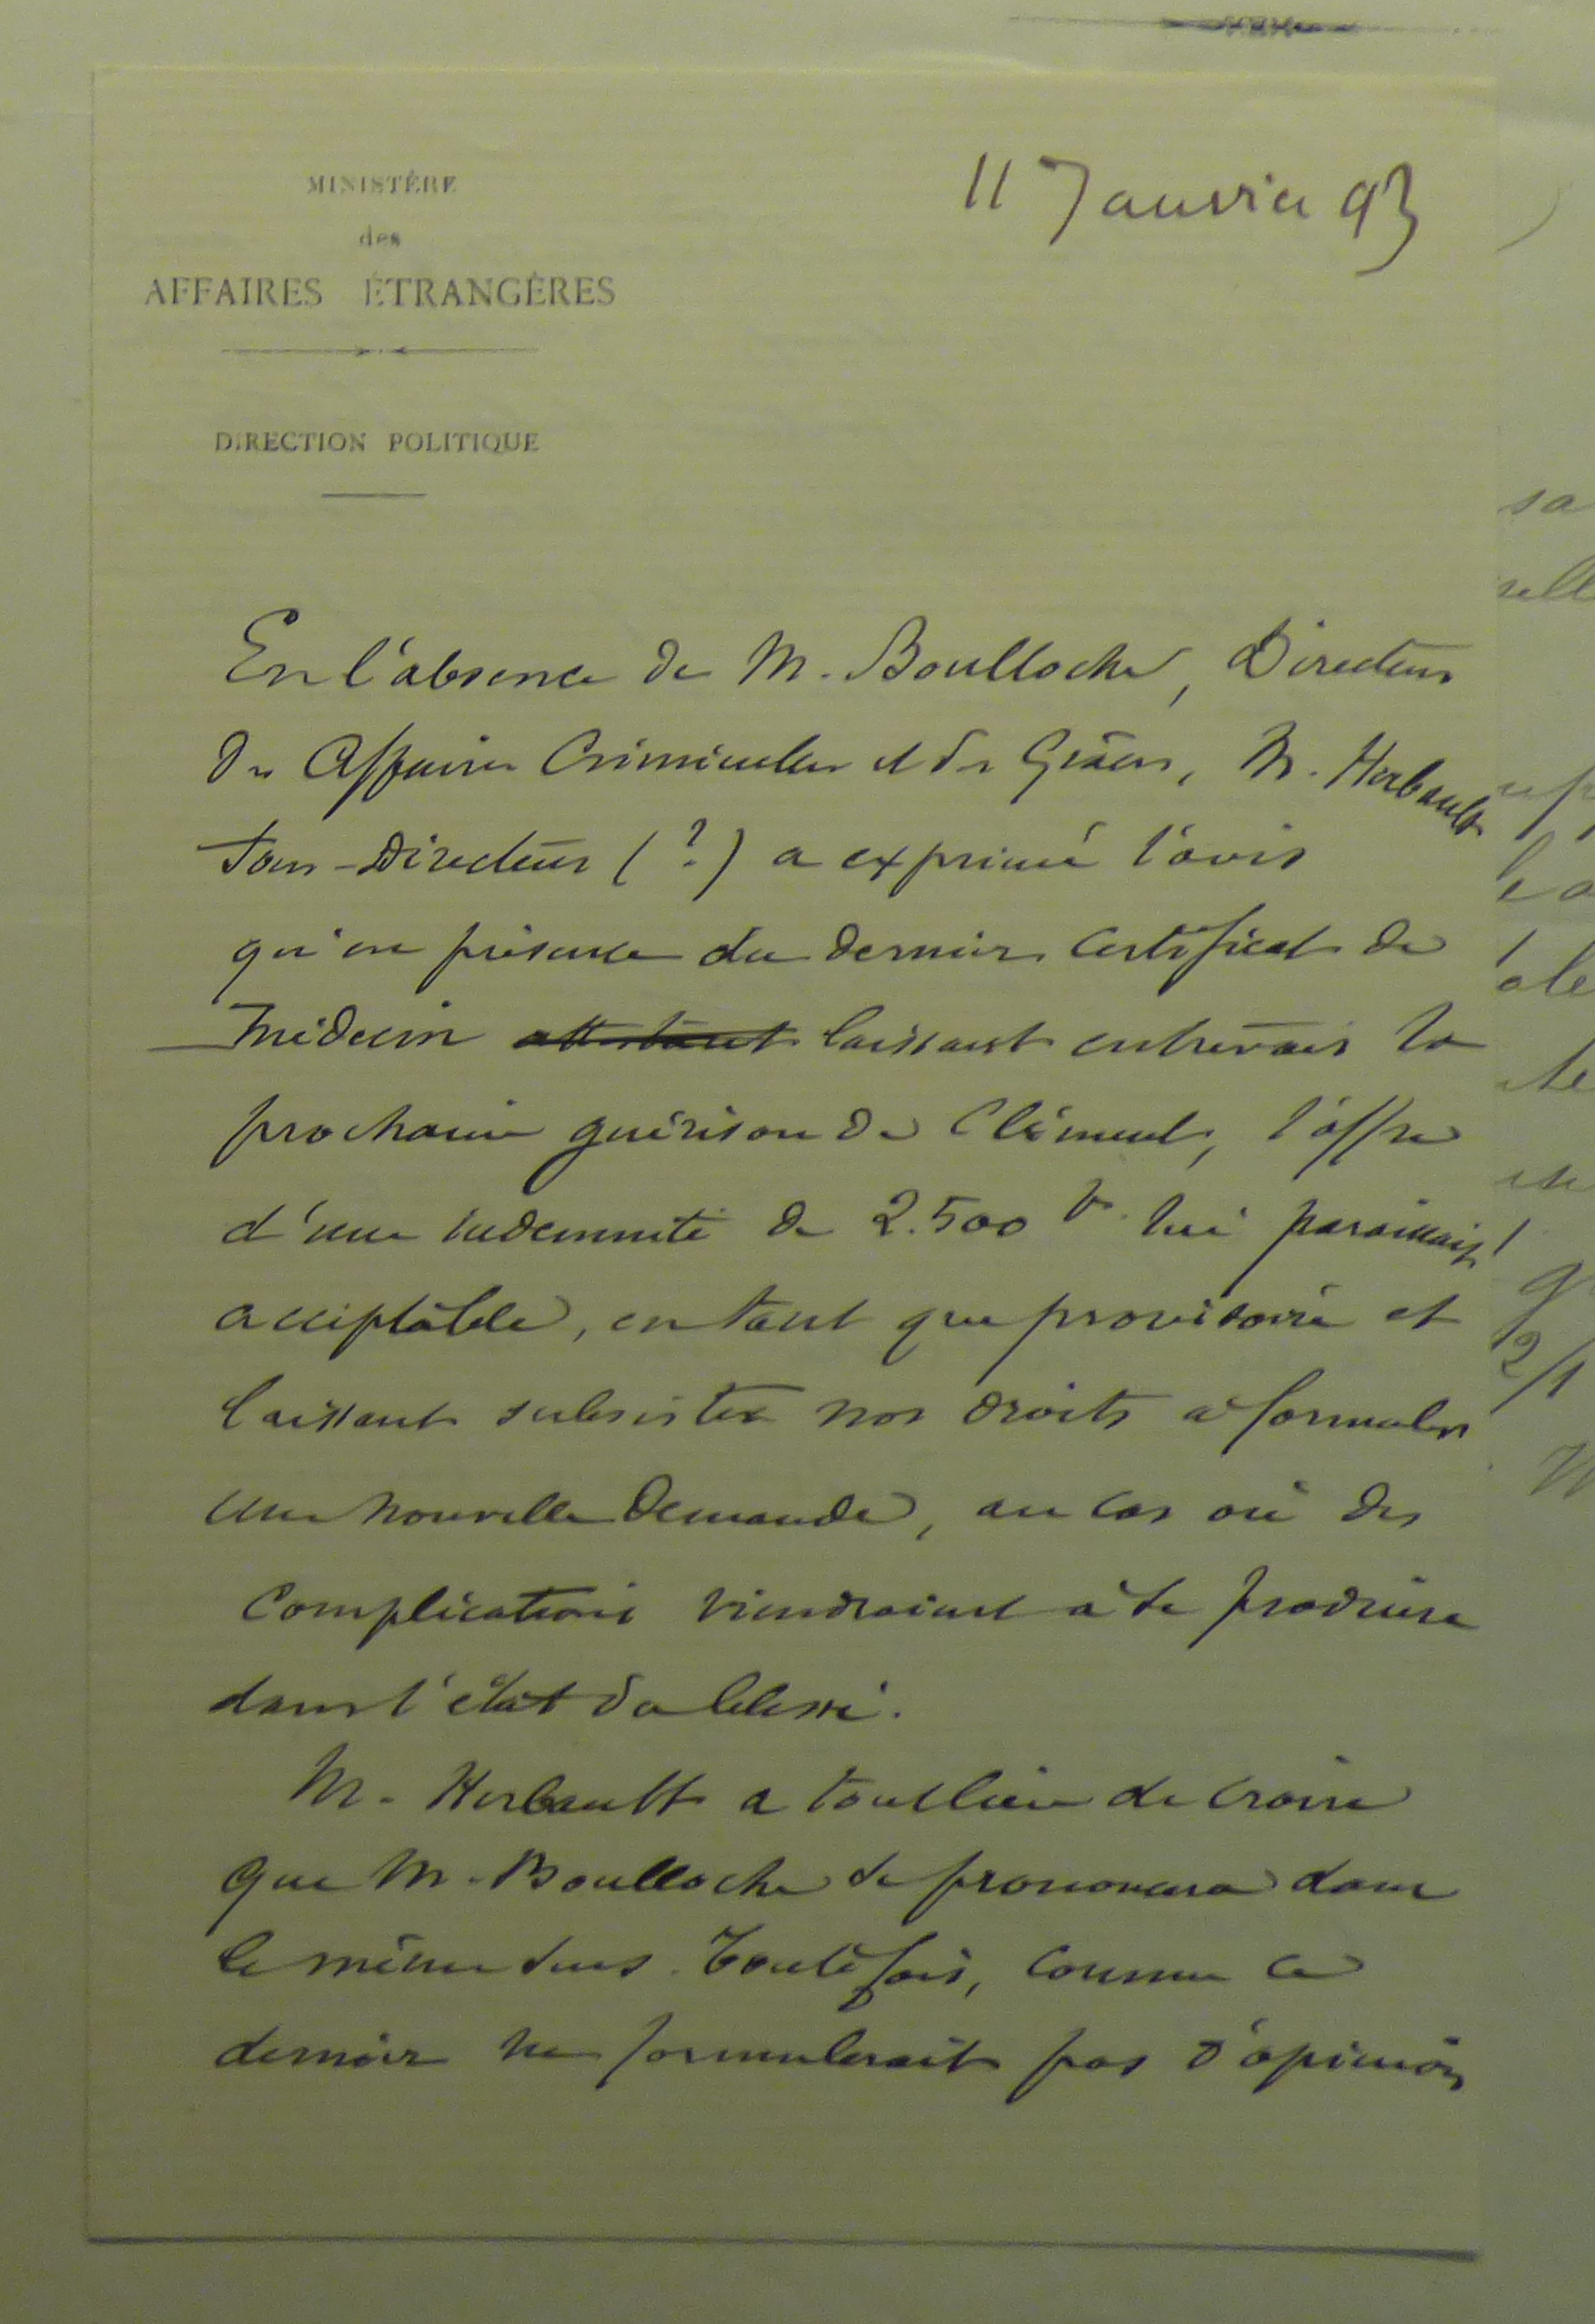 MINISTÈRE
des
AFFAIRES ÉTRANGÈRES
DIRECTION POLITIQUE
11 Janvier 93
En l'absence de M. Boulloche, Directeur
des Affaires Criminelles et des Grâces, M. Herbault
Sous-Directeur (?) a exprimé l'avis
qu'en présence du dernier certificat de
médecin attestant laissant entrevoir la
prochaine guérison de Clément, l'offre
d'une indemnité de 2.500 f. lui paraissait
acceptable, en tant que provisoire et
laissant subsister nos droits à formuler
une nouvelle demande, au cas où des
complications viendraient à se produire
dans l'état du blessé.
M. Herbault a tout lieu de croire
que M. Boulloche se prononcera dans
le même sens. Toutefois, comme ce
dernier ne formulerait pas d'opinion